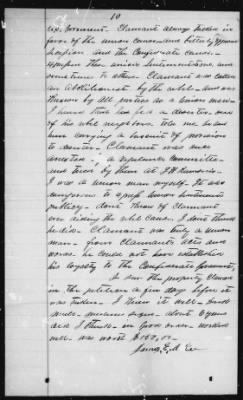 10
Government. Claimant always talked in
favor of the union cause and bitterly opposed
secession and the Confederate cause.
expressed their union Sentiments to me and
sometimes to others. Claimant was called
an Abolitionist by the rebels and was
known by all parties as a Union man.
I heard that
of his rebel neighbors told me he saw
him carrying a basket of provision
to Claimant was once
arrested by a vigilance Committee
and tried by them at
I was a union man myself. He also
expressed to me Union Sentiments
publicly. dont know of Claimant
ever aiding the rebel cause. I dont think
he did. Claimant was truly a union
man. from Claimants acts and
words he could not have established
his loyalty to the Confederate Government,
I saw the property named
in the petition a few days before it
was taken. I knew it well. bred
mule, medium size, about 6 years
old I think in good order. worked
well was worth $150.00